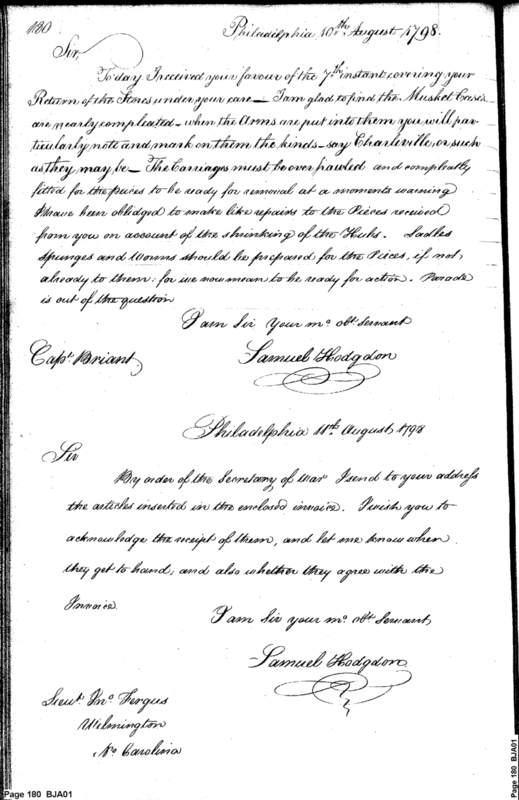 180
Philadelphia 10th August 1798.
Sir,
Today I received your favour of the 7th instant covering your
Return of the Stores under your care — I am glad to find the Musket Cases
are nearly compleated — when the Arms are put into them you will par-
ticularly note and mark on them the kinds — say Charleville, or such
as they may be — The Carriages must be over hawled and compleatly
fitted for the pieces to be ready for removal at a moments warning
I have been oblidged to make like repairs to the Pieces received
from you on account of the shrinking of the Hubs. Ladles
spunges and Worms should be prepared for the Pieces, if not,
already to them: for we now mean to be ready for action. Parade
is out of the question
I am Sir Your mo. obt. Servant
Capt. Briant,
Samuel Hodgdon
Philadelphia 11th August, 1798
Sir
By order of the Secretary of War I send to your address
the articles inserted in the enclosed invoice. I wish you to
acknowledge the receipt of them, and let me know when
they get to hand, and also whether they agree with the
Invoice.
I am Sir your mo. obt. Servant,
Samuel Hodgdon
Lieut. Jno. Fergus
Wilmington
No. Carolina
Page 180 BJA01
Page 180 BJA01